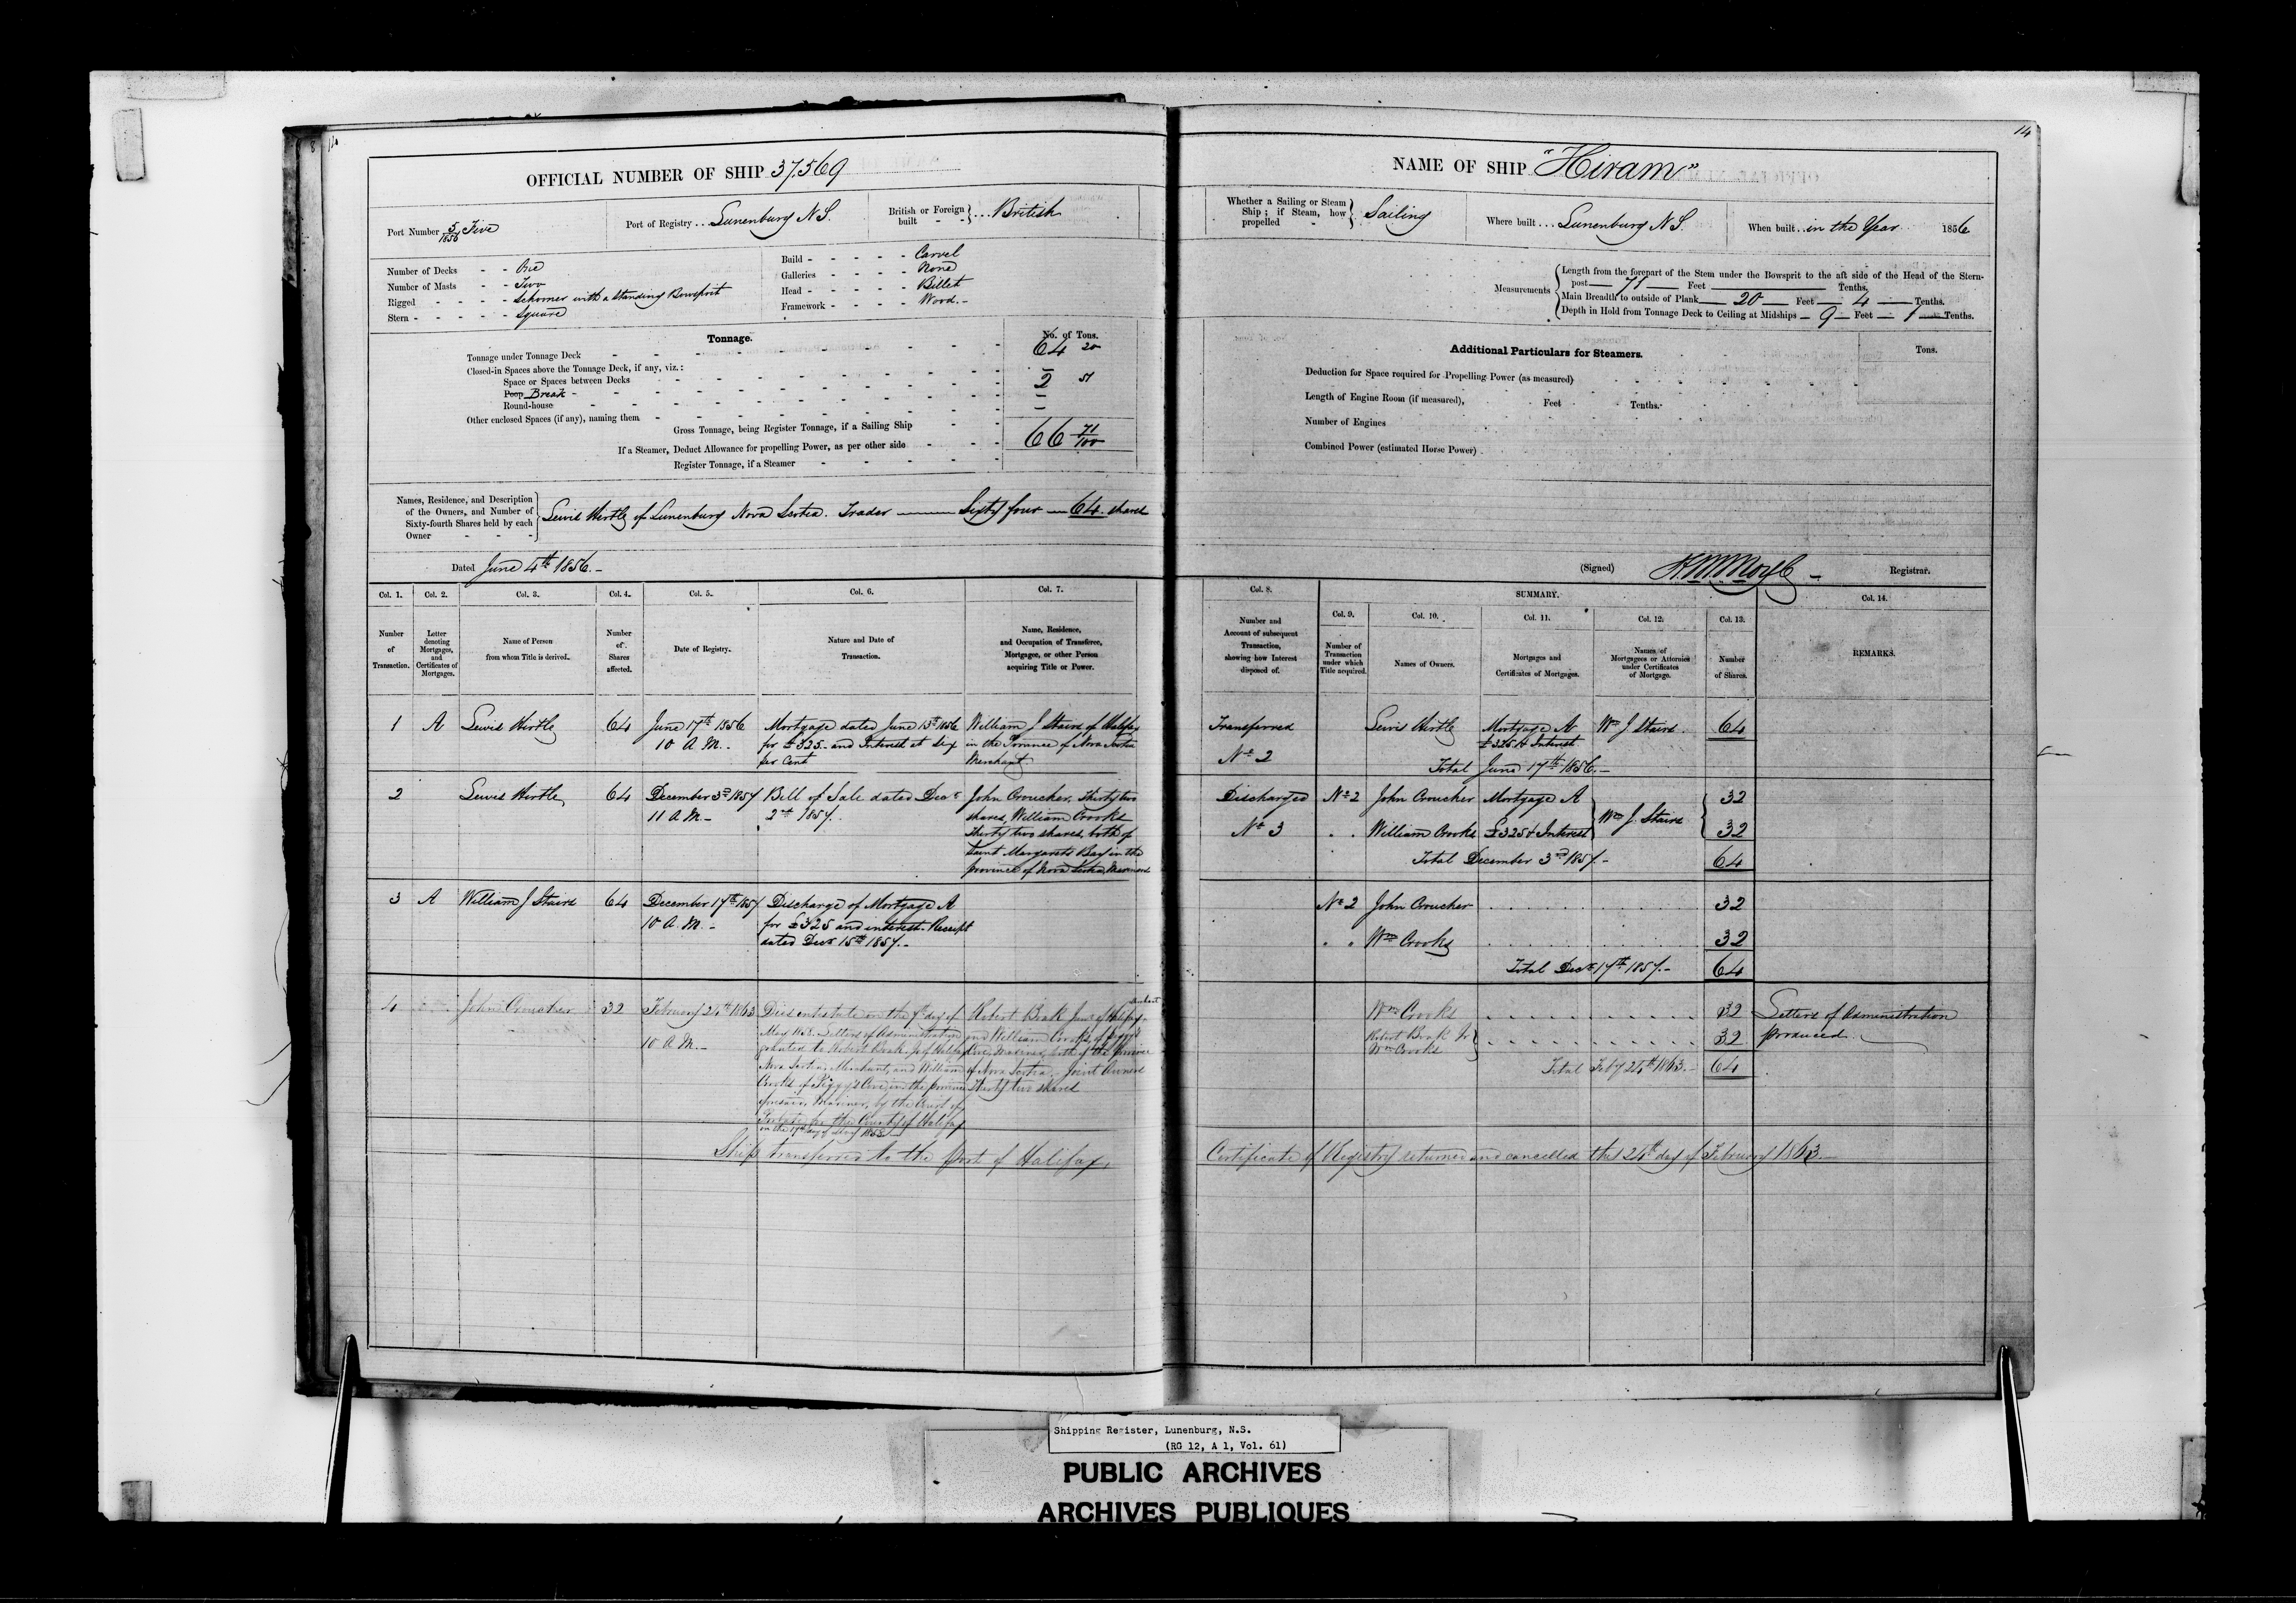 14
OFFICIAL NUMBER OF SHIP 37,569
Port Number 5/1856 Five
Port of Registry .. Lunenburg N S.
British or Foreign built - - } ... British
Number of Decks - - One
Number of Masts - - Two
Rigged - - - - Schooner with a standing Bowsprit
Stern - - - - - Square
Build - - - - - Carvel
Galleries - - - - None
Head - - - - - Billet
Framework - - - - Wood.-
Tonnage.
No. of Tons.
Tonnage under Tonnage Deck 64 20
Closed-in Spaces above the Tonnage Deck, if any, viz.:
Space or Spaces between Decks —
Poop Break 2 51
Round-house —
Other enclosed Spaces (if any), naming them —
Gross Tonnage, being Register Tonnage, if a Sailing Ship 66 71/100
If a Steamer, Deduct Allowance for propelling Power, as per other side
Register Tonnage, if a Steamer
Names, Residence, and Description
of the Owners, and Number of
Sixty-fourth Shares held by each
Owner - - -
Lewis Hirtle of Lunenburg Nova Scotia. Trader —— Sixty four — 64 shares
Dated June 4th 1856.-
Col. 1. Col. 2. Col. 3. Col. 4. Col. 5. Col. 6. Col. 7.
Number of Transaction.
Letter denoting Mortgages, and Certificates of Mortgages.
Name of Person from whom Title is derived.
Number of Shares affected.
Date of Registry.
Nature and Date of Transaction.
Name, Residence, and Occupation of Transferee, Mortgagee, or other Person acquiring Title or Power.
1 A Lewis Hirtle 64 June 17th 1856 Mortgage dated June 13th 1856 William J Stairs of Halifax
10 A.M.. for £325- and Interest at Six in the Province of Nova Scotia
per Cent Merchant
2 Lewis Hirtle 64 December 3rd 1857 Bill of Sale dated Decr John Croucher, Thirty two
11 A.M.- 2nd 1857. shares, William Crooks
thirty two shares, both of
Saint Margarets Bay in the
province of Nova Scotia, Mariners
3 A William J Stairs 64 December 17th 1857 Discharge of Mortgage A
10 A.M.- for £325 and interest. Receipt
dated Decr 15th 1857.-
4 John Croucher 32 February 24th 1863 Died intestate on the 7th day of Robert Boak Junr of Halifax
10 A.M.- Letters of Administration and William Crooks, of Peggy's
granted to Robert Boak Jr of Halifax Cove, Mariner, both of the Province
Nova Scotia, Merchant, and William of Nova Scotia. Joint Owners
Crooks of Peggy's Cove, in the province Thirty two shares
aforesaid, Mariner, by the Court of
Probate for the County of Halifax
on the 17th day of 
Ship transferred to the port of Halifax.
14
NAME OF SHIP "Hiram"
Whether a Sailing or Steam
Ship; if Steam, how
propelled - } Sailing
Where built ... Lunenburg N S.
When built .. in the Year 1856
Measurements
Length from the forepart of the Stem under the Bowsprit to the aft side of the Head of the Stern-
post — 71 — Feet —— Tenths.
Main Breadth to outside of Plank — 20 — Feet — 4 — Tenths.
Depth in Hold from Tonnage Deck to Ceiling at Midships — 9 — Feet — 1 — Tenths.
Additional Particulars for Steamers.
Tons.
Deduction for Space required for Propelling Power (as measured)
Length of Engine Room (if measured), Feet Tenths.
Number of Engines
Combined Power (estimated Horse Power)
(Signed) Registrar.
Col. 8. SUMMARY. Col. 14.
Col. 9. Col. 10. Col. 11. Col. 12. Col. 13.
Number and Account of subsequent Transaction, showing how Interest disposed of.
Number of Transaction under which Title acquired.
Names of Owners.
Mortgages and Certificates of Mortgages.
Names of Mortgagees or Attornies under Certificates of Mortgage.
Number of Shares.
REMARKS.
Transferred Lewis Hirtle Mortgage A Wm J Stairs. 64
No 2 £325 & Interest
Total June 17th 1856.-
Discharged No 2 John Croucher Mortgage A 32
No 3 . . William Crooks £325 & Interest Wm J. Stairs 32
Total December 3rd 1857.- 64
No 2 John Croucher 32
. . Wm Crooks 32
Total Decr 17th 1857.- 64
Wm Crooks 32 Letters of Administration
Robert Boak Jr 32 produced.
Wm Crooks
Total Feby 24th 1863.- 64
Certificate of Registry returned and cancelled this 24th day of February 1863.-
Shipping Register, Lunenburg, N.S.
(RG 12, A 1, Vol. 61)
PUBLIC ARCHIVES
ARCHIVES PUBLIQUES